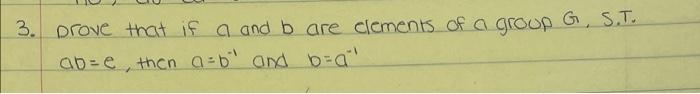 3. prove that if a and b are elements of a group G, S.T.
ab=e, then a=b⁻¹ and b=a⁻¹